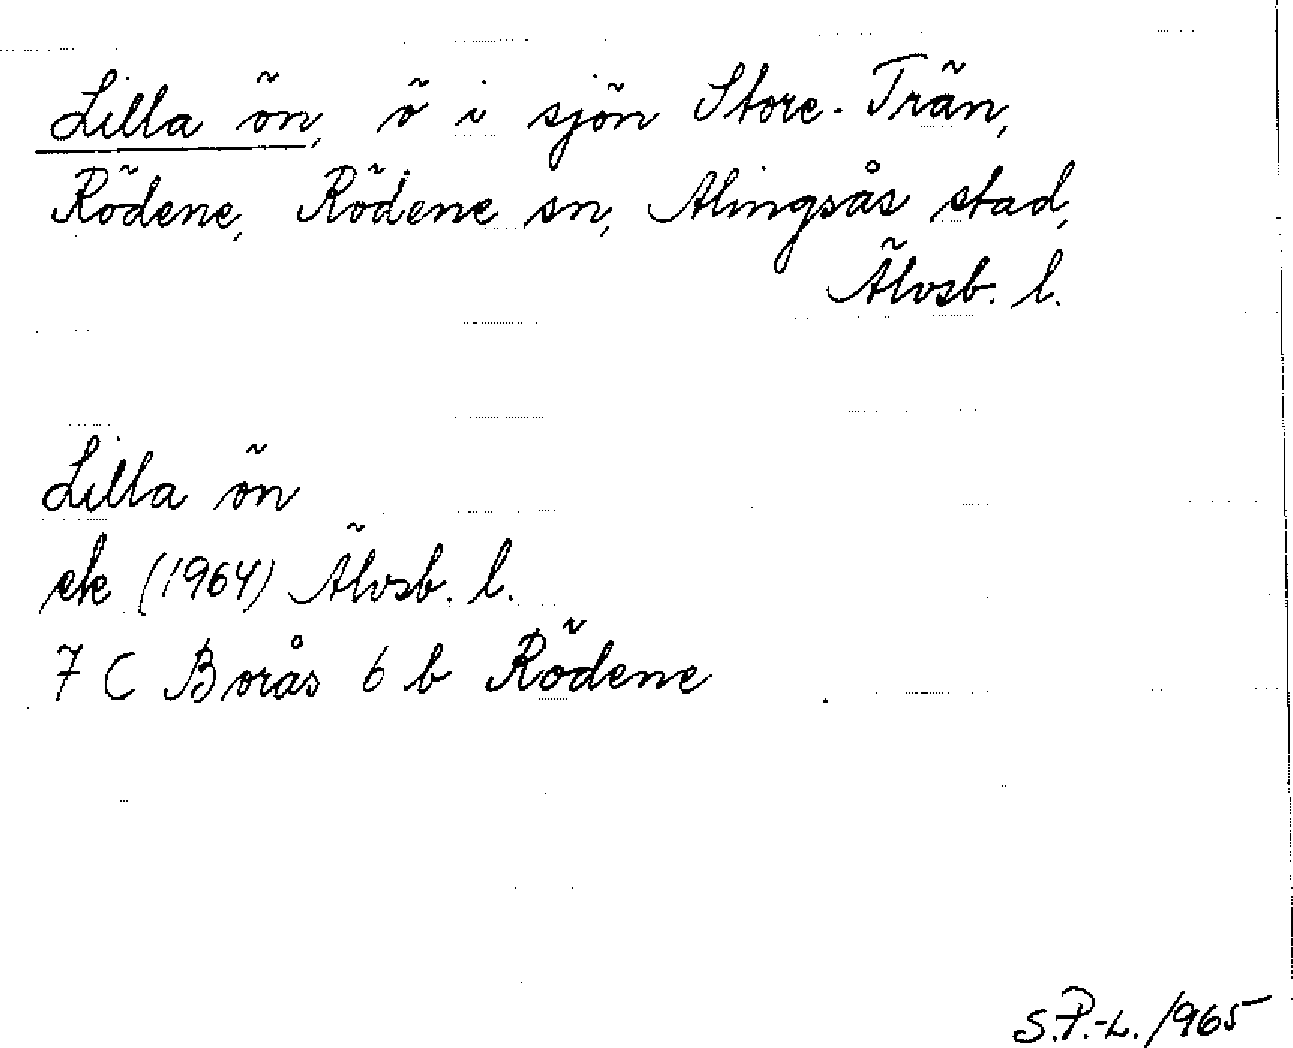 Lilla ön, ö i sjön Store-Trän,
Rödene, Rödene sn, Alingsås stad,
Älvsb. l.
Lilla ön
ek (1964) Älvsb. l.
7 C Borås 6 b Rödene
S.P.-L. 1965